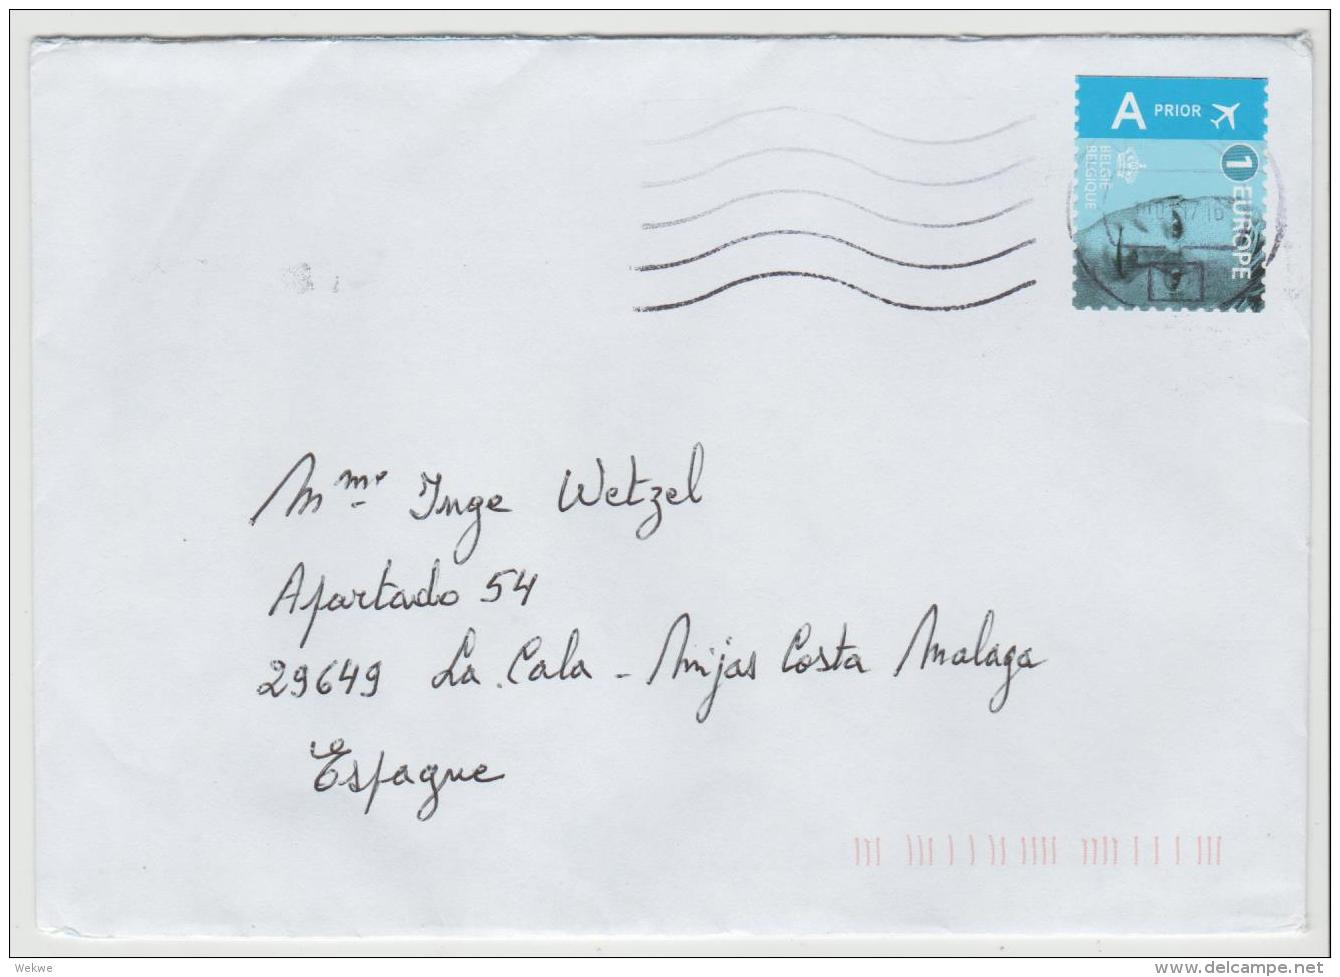 A PRIOR
1 EUROPE
BELGIE
BELGIQUE
Mme Inge Wetzel
Apartado 54
29649 La Cala - Mijas Costa Malaga
Espagne
Wekwe
delcampe.net